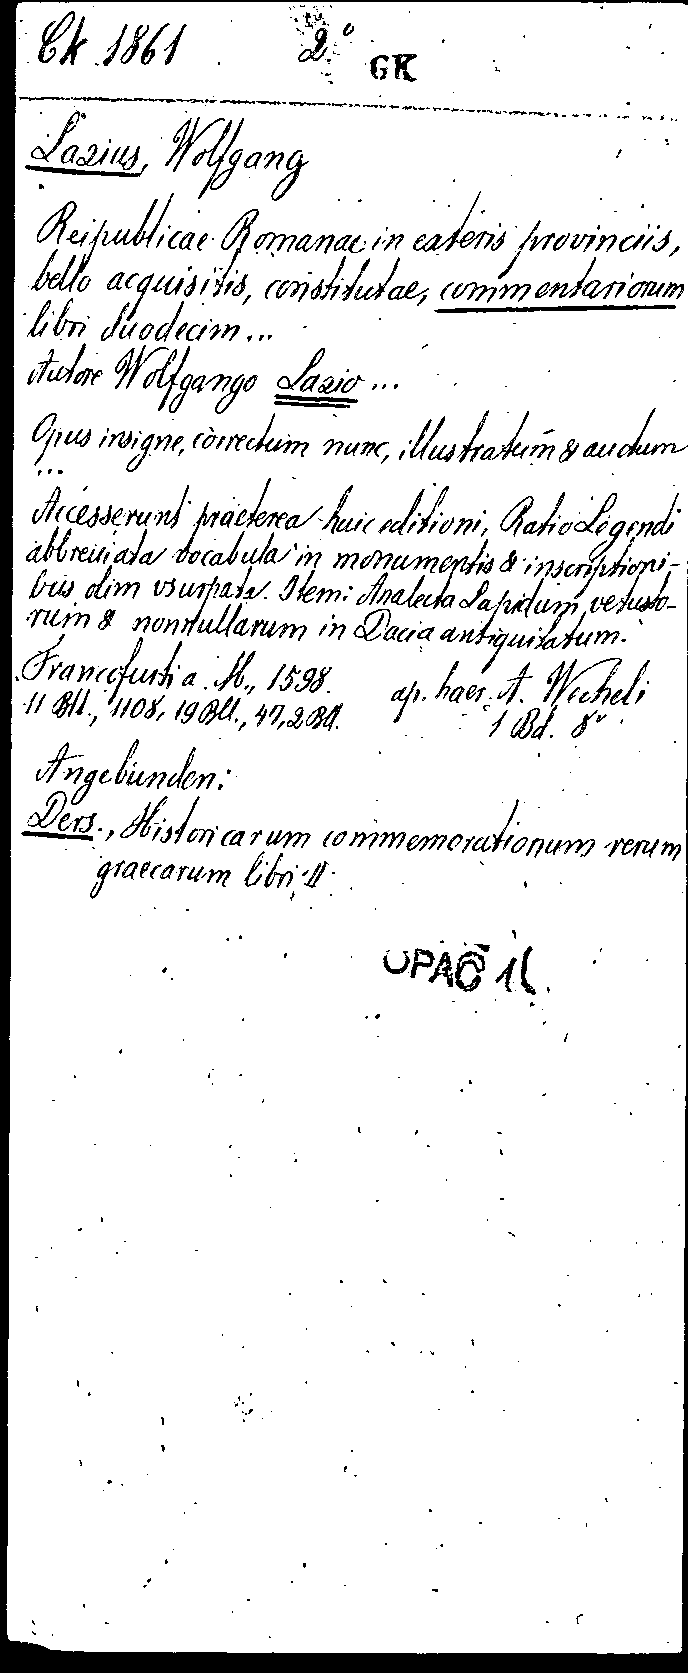 Ck 1861 2° GK
Lazius, Wolfgang
Reipublicae Romanae in exteris provinciis,
bello acquisitis, constitutae, commentariorum
libri duodecim...
Autore Wolfgango Lazio...
Opus insigne, correctum nunc, illustratum & auctum
...
Accesserunt praeterea huic editioni, Ratio Legendi
abbreuiata vocabula in monumentis & inscriptioni-
bus olim vsurpata. Item: Analecta Lapidum vetusto-
rum & nonnullarum in Dacia antiquitatum.
Francofurti a. M., 1598. ap. haer. A. Wecheli
11 Bll., 1108, 19 Bll., 47, 2 Bll. 1 Bd. 8°
Angebunden:
Ders., Historicarum commemorationum rerum
graecarum libri II.
OPAC